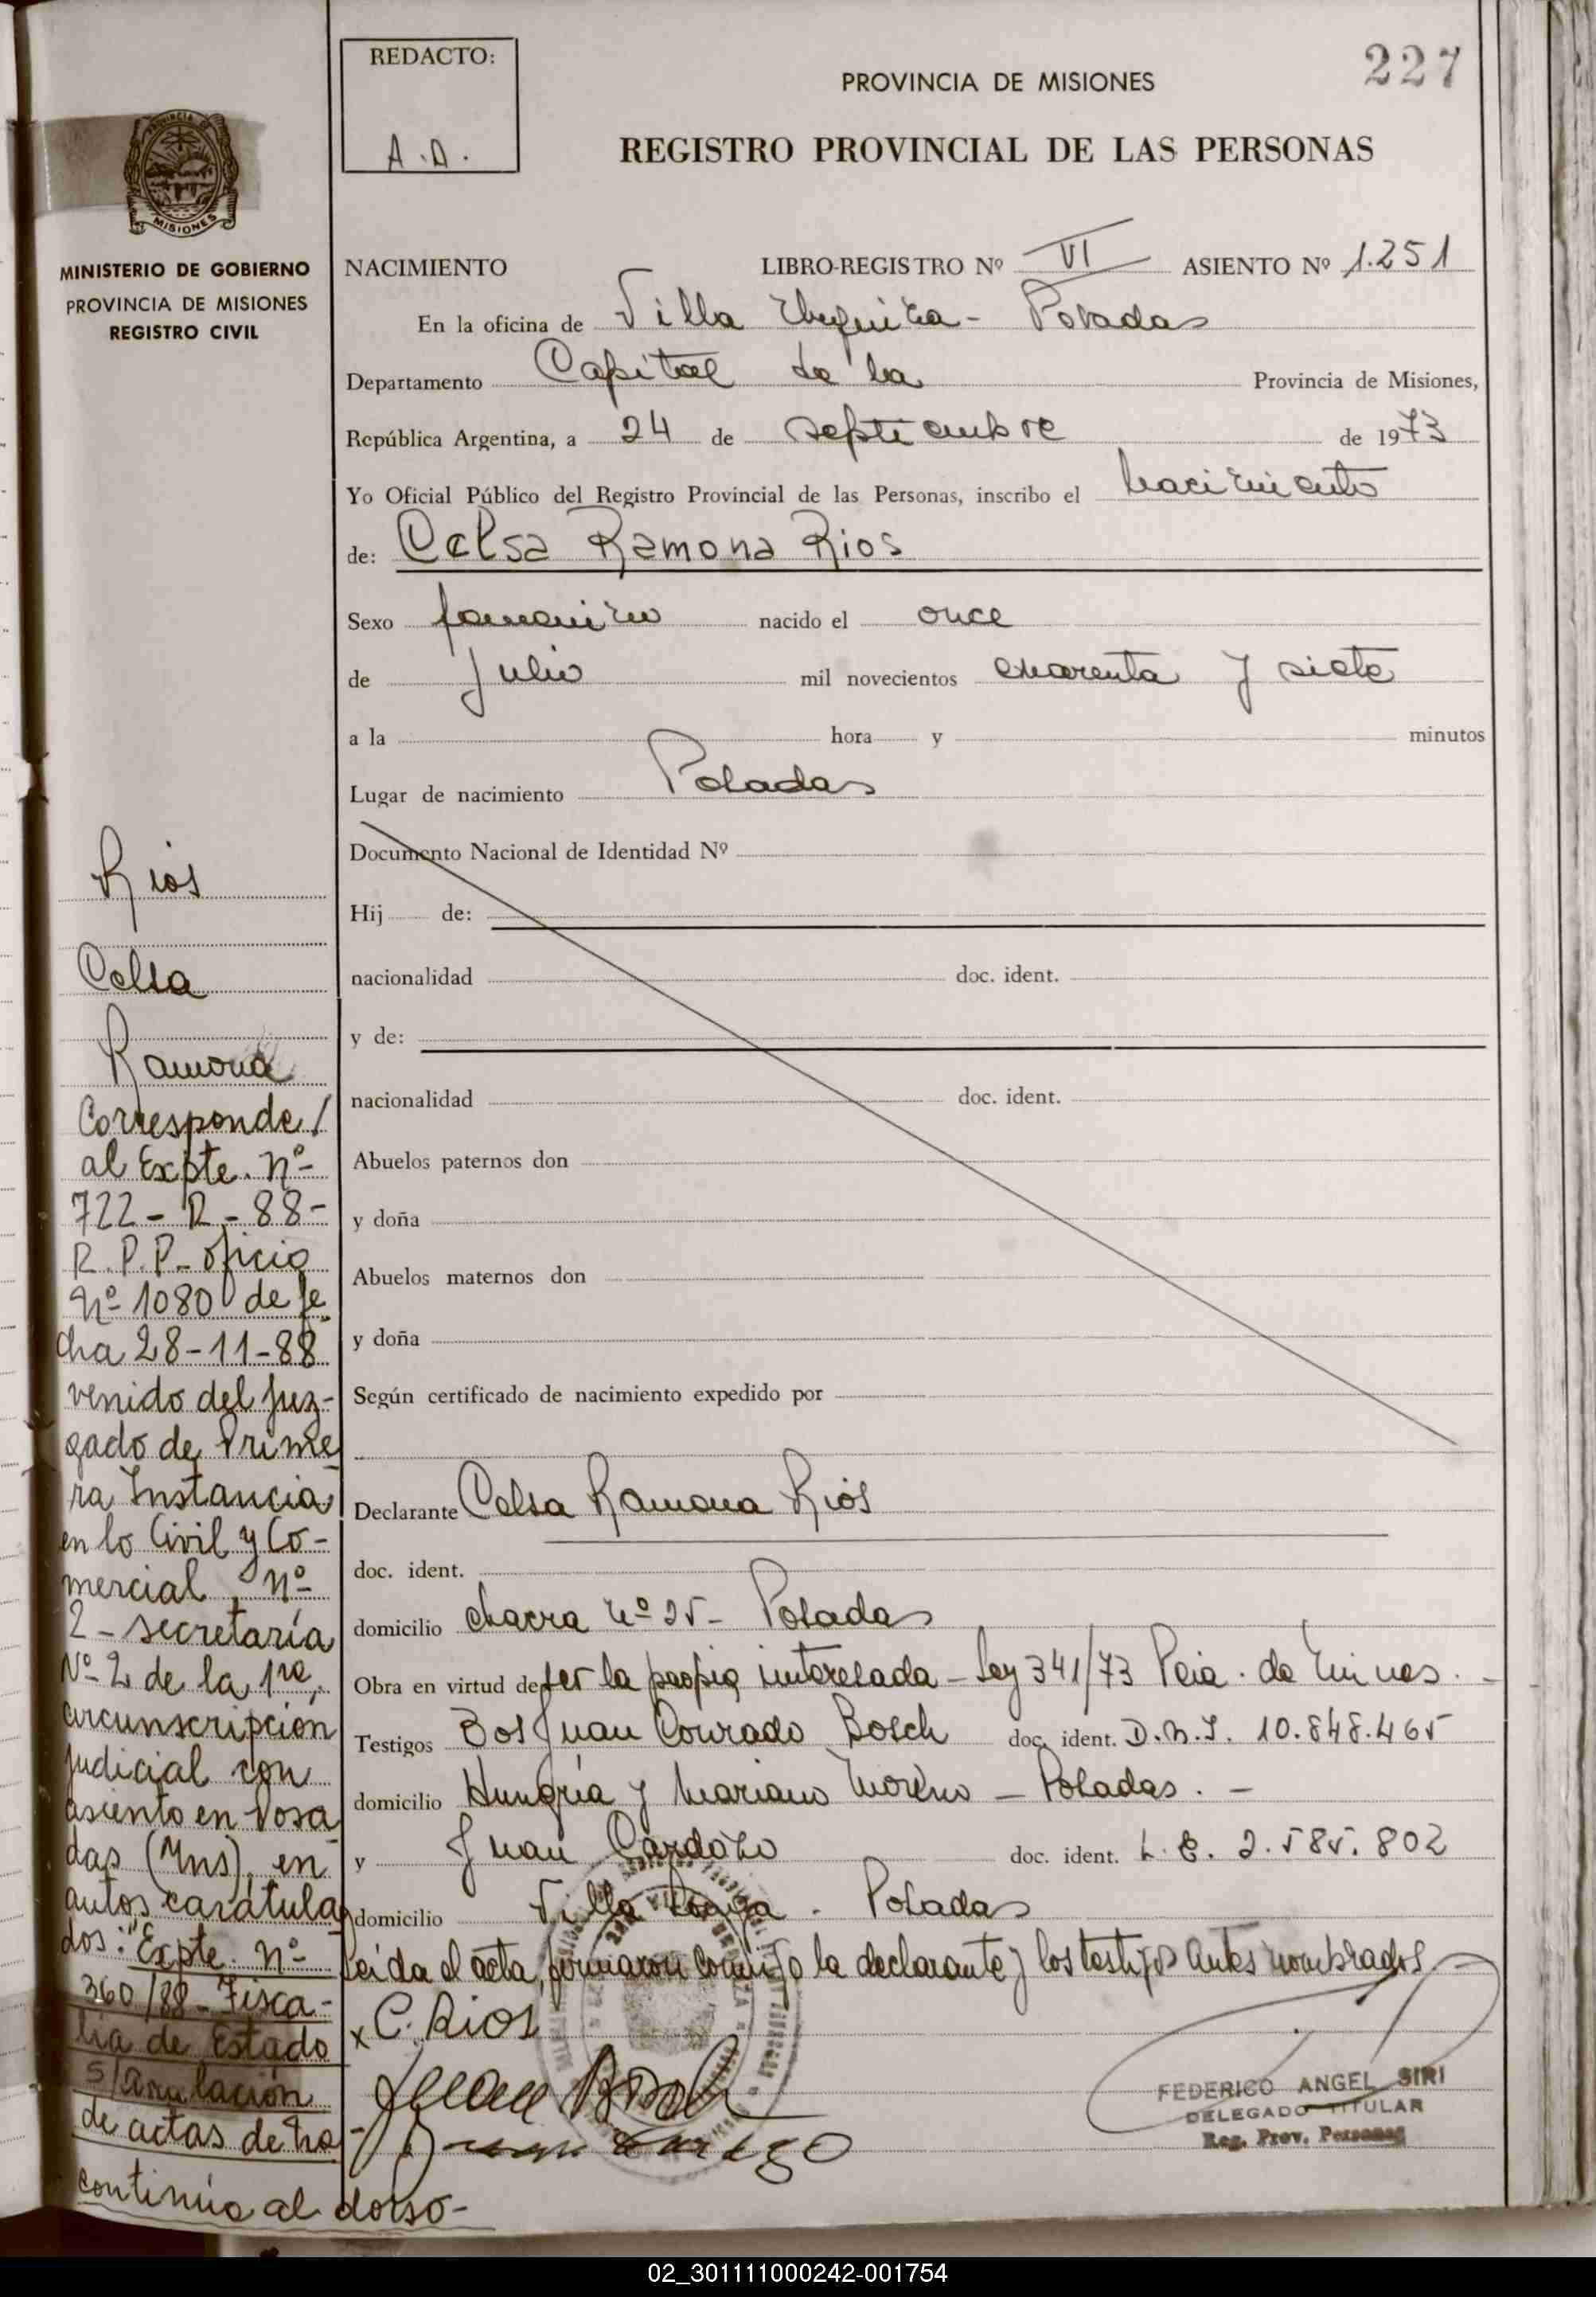 227
REDACTO:
A.A.
PROVINCIA DE MISIONES
REGISTRO PROVINCIAL DE LAS PERSONAS
PROVINCIA DE
MISIONES
MINISTERIO DE GOBIERNO
PROVINCIA DE MISIONES
REGISTRO CIVIL
NACIMIENTO LIBRO-REGISTRO Nº VI ASIENTO Nº 1.251
En la oficina de Villa Urquiza - Posadas
Departamento Capital de la Provincia de Misiones,
República Argentina, a 24 de septiembre de 1973
Yo Oficial Público del Registro Provincial de las Personas, inscribo el nacimiento
de: Celsa Ramona Rios
Sexo femenino nacido el once
de Julio mil novecientos cuarenta y siete
a la hora y minutos
Lugar de nacimiento Posadas
Documento Nacional de Identidad Nº
Hij de:
nacionalidad doc. ident.
y de:
nacionalidad doc. ident.
Abuelos paternos don
y doña
Abuelos maternos don
y doña
Según certificado de nacimiento expedido por
Declarante Celsa Ramona Rios
doc. ident.
domicilio chacra nº 25 - Posadas
Obra en virtud de ser la propia interesada - Ley 341/73 Pcia. de
Testigos Juan Conrado Bosch doc. ident. D.N.I. 10.848.465
domicilio Hungría y Mariano Moreno - Posadas. -
y Juan Cardozo doc. ident. L.E. 2.585.802
domicilio Villa - Posadas
Leida el acta, firmaron conmigo la declarante y los testigos antes nombrados
x C. Rios
Juan Bosch
FEDERICO ANGEL SIRI
DELEGADO TITULAR
Reg. Prov. Personas
Rios
Celsa
Ramona
Corresponde/
al Expte. nº-
722 - R - 88-
R.P.P. oficio
nº 1080 de fe
cha 28-11-88
venido del Juz-
gado de Prime
ra Instancia
en lo Civil y Co-
mercial, nº
2 - secretaría
Nº 2 de la 1ra,
circunscripción
judicial con
asiento en Posa
das (Mns), en
autos caratula
dos: "Expte. nº-
360/88 - Fisca-
lia de Estado
s/anulación
de actas de na-
continúa al dorso-
02_301111000242-001754